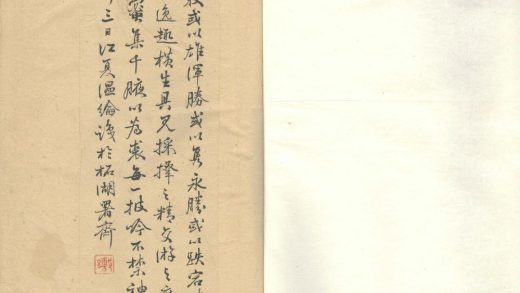 或以雄渾勝或以雋永勝或以跌宕
逸趣橫生具見採擇之精交游之
蜜集千腋以為裘每一披吟不禁神
三日江夏溫綸識於柘湖署齋